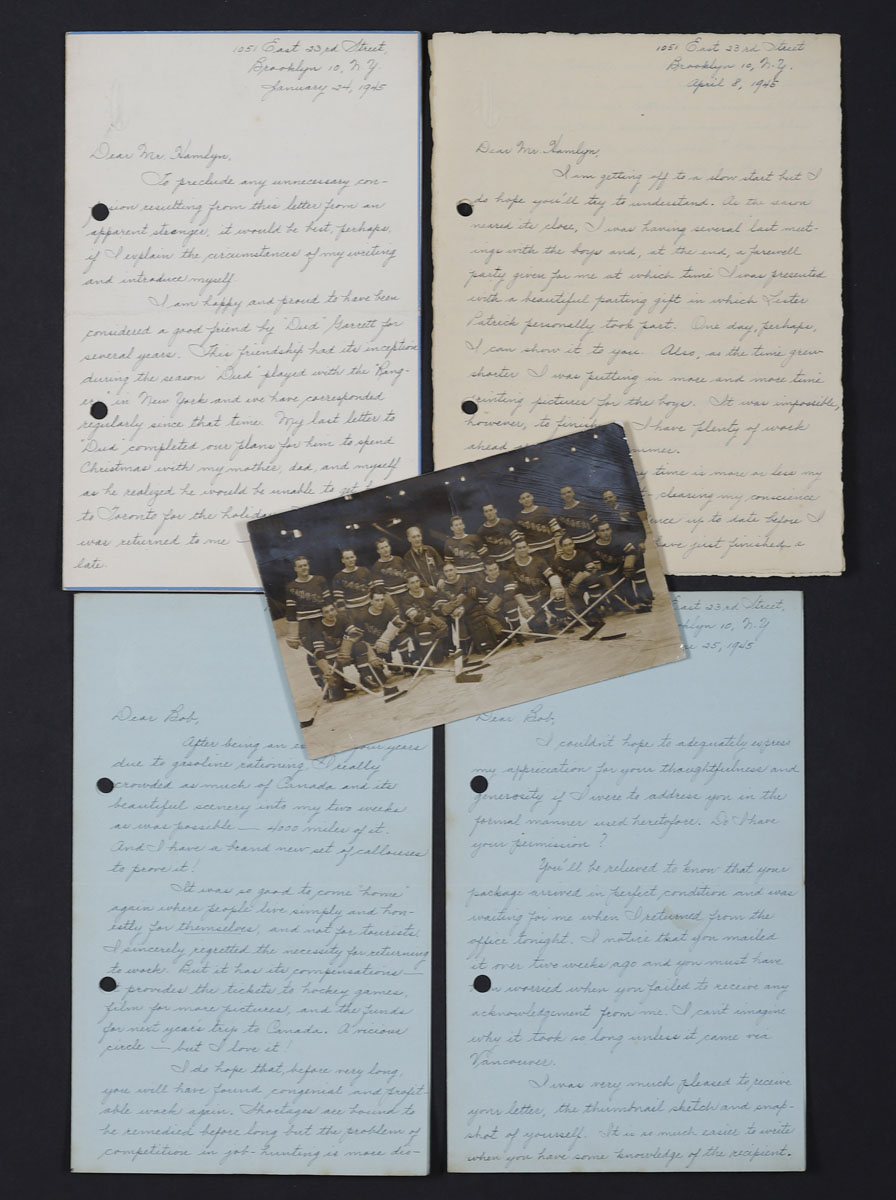 1051 East 23rd Street,
Brooklyn 10, N.Y.
January 24, 1945
Dear Mr. Hamlyn,
To preclude any unnecessary con-
sion resulting from this letter from an
apparent stranger, it would be best, perhaps,
if I explain the circumstances of my writing
and introduce myself.
I am happy and proud to have been
considered a good friend by "Dud" Garrett for
several years. This friendship had its inception
during the season "Dud" played with the "Rang-
ers" in New York and we have corresponded
regularly since that time. My last letter to
"Dud" completed our plans for him to spend
Christmas with my mother, dad, and myself
as he realized he would be unable to get
to Toronto for the holiday
was returned to me —
late.
1051 East 23rd Street
Brooklyn 10, N.Y.
April 8, 1945
Dear Mr. Hamlyn,
I am getting off to a slow start but I
do hope you'll try to understand. As the season
neared its close, I was having several last meet-
ings with the boys and, at the end, a farewell
party given for me at which time I was presented
with a beautiful parting gift in which Lester
Patrick personally took part. One day, perhaps,
I can show it to you. Also, as the time grew
shorter I was putting in more and more time
printing pictures for the boys. It was impossible,
however, to finish I have plenty of work
ahead
my time is more or less my
clearing my conscience
up to date before I
have just finished a
Dear Bob,
After being an your years
due to gasoline rationing I really
crowded as much of Canada and its
beautiful scenery into my two weeks
as was possible — 4000 miles of it.
And I have a brand new set of callouses
to prove it!
It was so good to come "home"
again where people live simply and hon-
estly for themselves, and not for tourists.
I sincerely regretted the necessity for returning
to work. But it has its compensations —
it provides the tickets to hockey games,
film for more pictures, and the funds
for next year's trip to Canada. A vicious
circle — but I love it!
I do hope that, before very long,
you will have found congenial and profit-
able work again. Shortages are bound to
be remedied before long but the problem of
competition in job-hunting is more dis-
East 23rd Street,
Brooklyn 10, N.Y.
25, 1945
Dear Bob,
I couldn't hope to adequately express
my appreciation for your thoughtfulness and
generosity if I were to address you in the
formal manner used heretofore. Do I have
your "permission"?
You'll be relieved to know that your
package arrived in perfect condition and was
waiting for me when I returned from the
office tonight. I notice that you mailed
it over two weeks ago and you must have
been worried when you failed to receive any
acknowledgement from me. I can't imagine
why it took so long unless it came via
Vancouver.
I was very much pleased to receive
your letter, the thumbnail sketch and snap-
shot of yourself. It is so much easier to write
when you have some knowledge of the recipient.